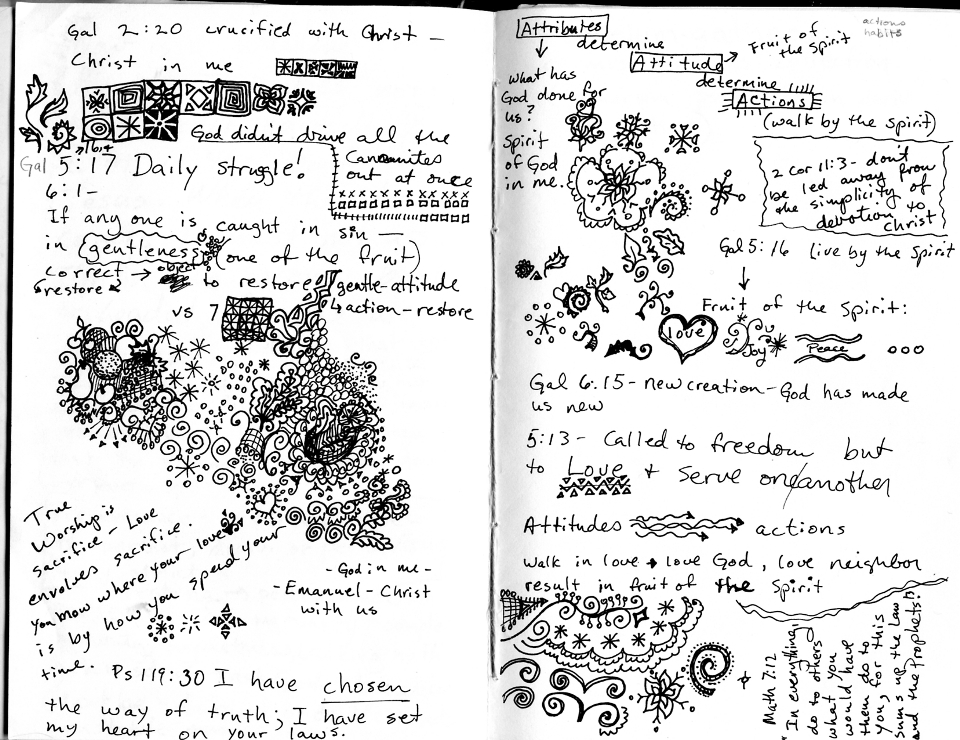 Gal 2:20 crucified with Christ –
Christ in me
God didn't drive all the
Canaanites
out at once
16,+
Gal 5:17 Daily struggle!
6:1 –
If any one is caught in sin —
in gentleness (one of the fruit)
correct → object
"restore" to restore
gentle-attitude
↳ action-restore
vs 7
True
Worship is
sacrifice – Love
envolves sacrifice.
You know where your love
is by how you spend your
time.
- God in me -
- Emanuel - Christ
with us
Ps 119:30 I have chosen
the way of truth; I have set
my heart on your laws.
Attributes
↓
determine
Attitude → Fruit of
the Spirit
actions
habits
determine
Actions
(walk by the spirit)
what has
God done for
us?
Spirit
of God
in me.
2 cor 11:3 - don't
be led away from
the simplicity of
devotion to
Christ
Gal 5:16 live by the Spirit
↓
Fruit of the Spirit:
love
Joy
Peace
ooo
Gal 6:15 - new creation - God has made
us new
5:13 - Called to freedom but
to Love + serve one/another
Attitudes → actions
walk in love → love God, love neighbor
result in fruit of the Spirit
Math 7:12
"In everything,
do to others
what you
would have
them do to
you, for this
sums up the Law
and the Prophets."